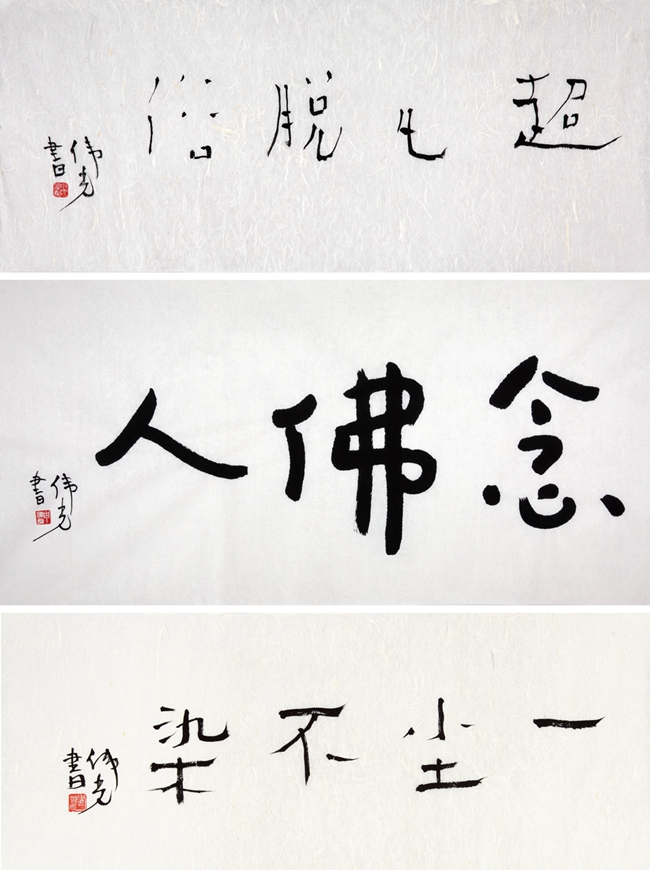 超凡脱俗
伟光
書
念佛人
伟光
書
一尘不染
伟光
書